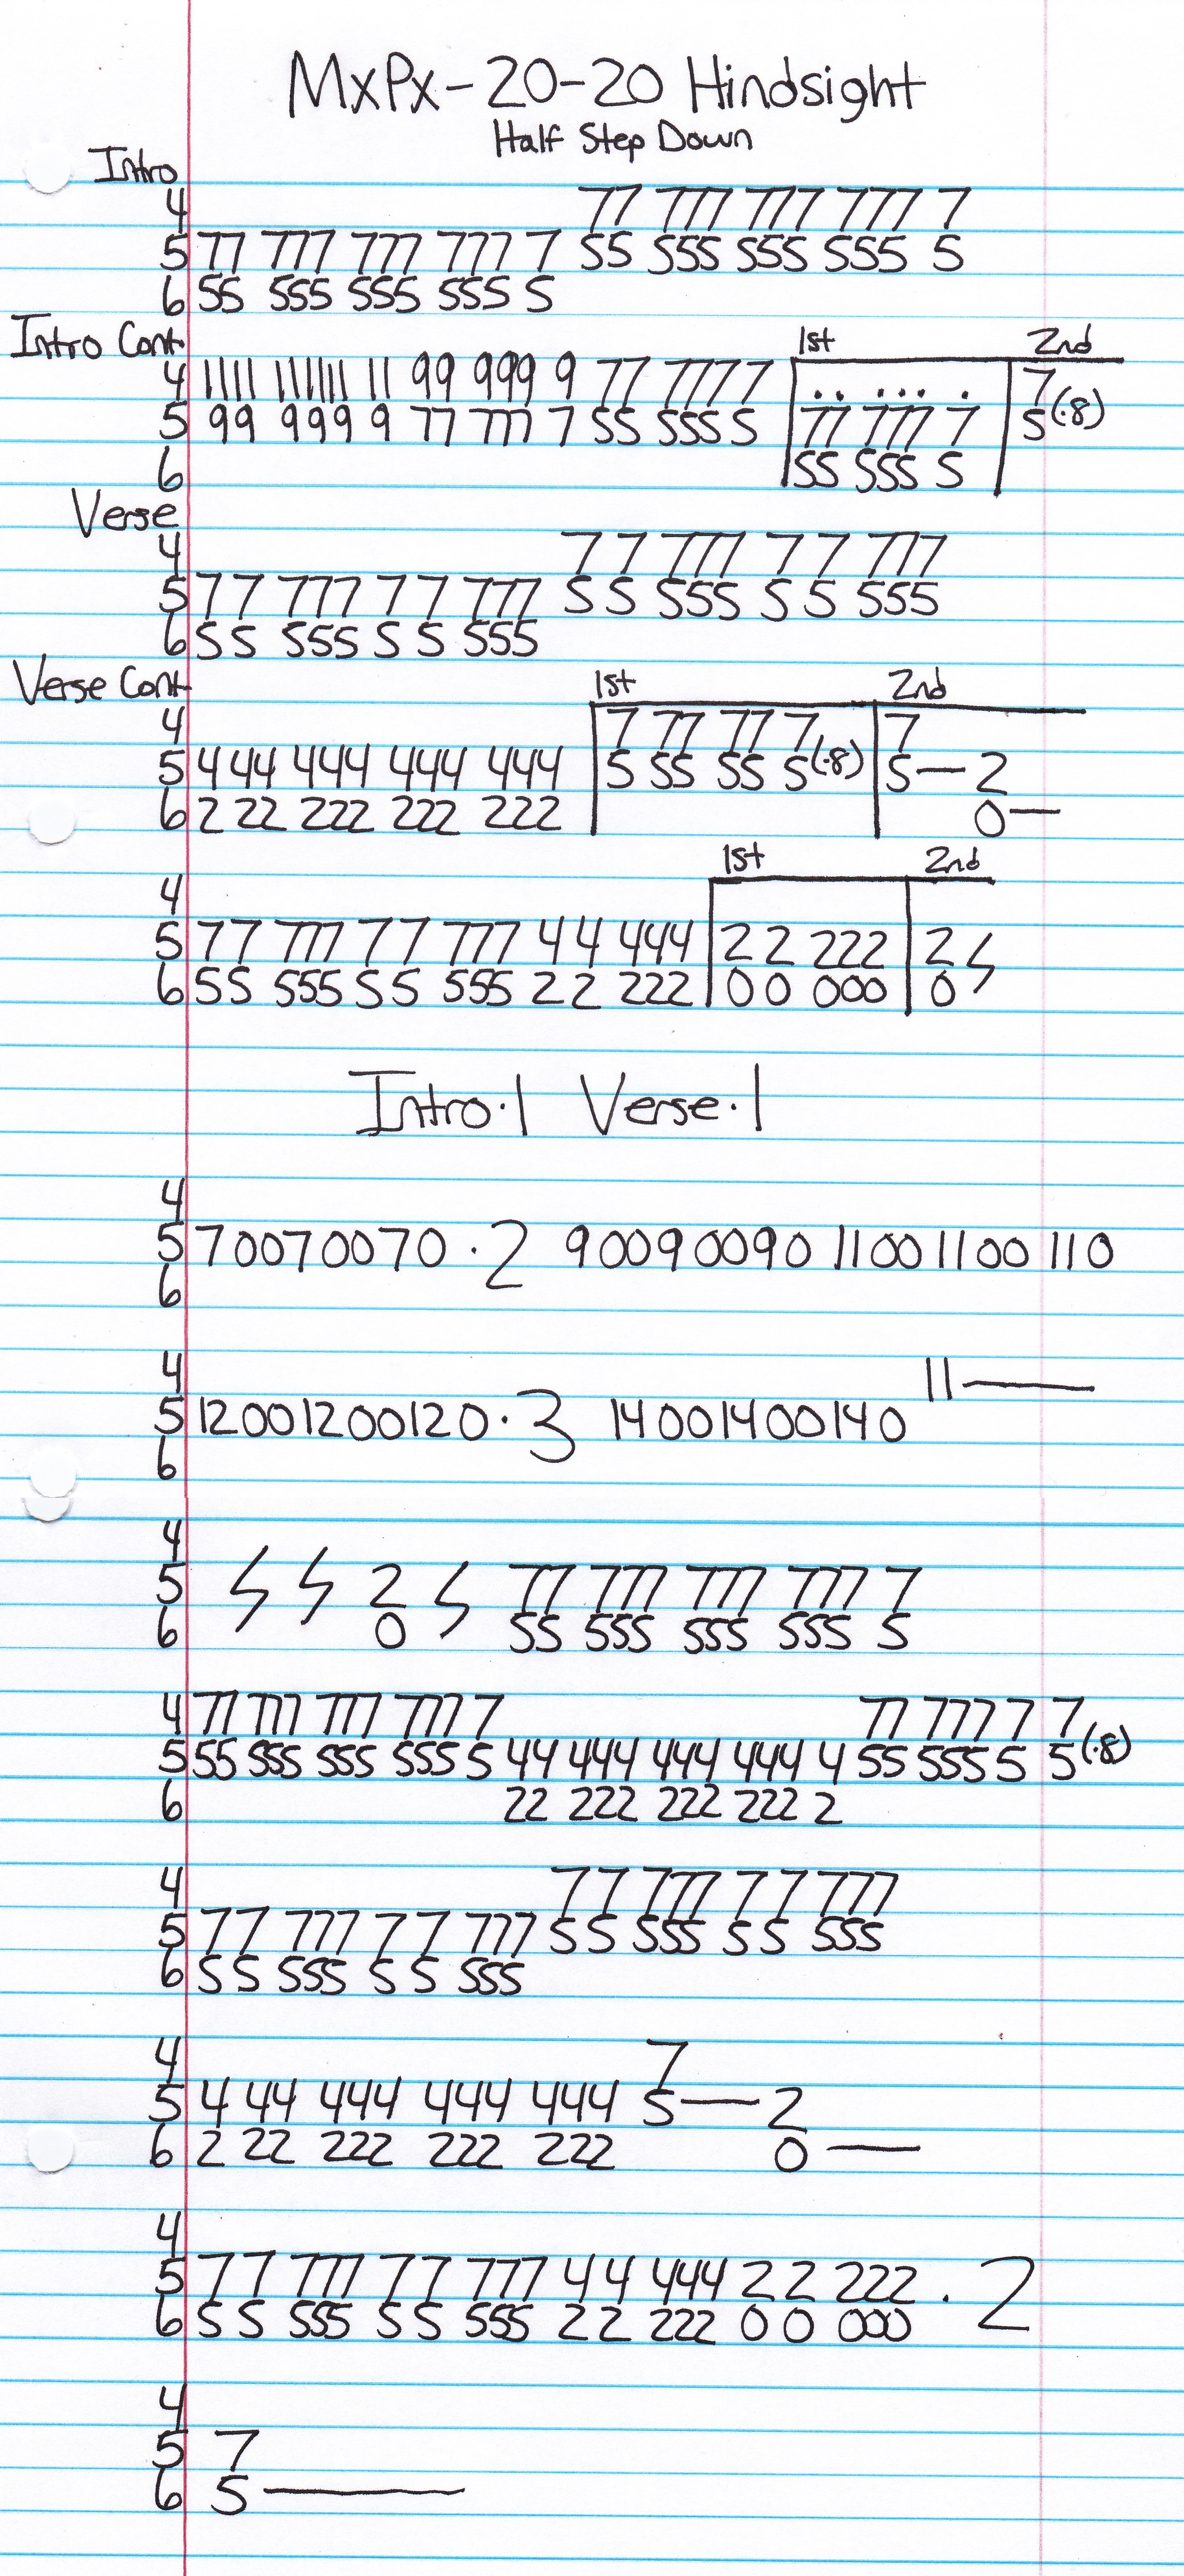 MxPx-20-20 Hindsight
Half Step Down
Intro
4 77 777 777 777 7
5 77 777 777 777 7 55 555 555 555 5
6 55 555 555 555 5
Intro Cont. 1st 2nd
4 1111 111111 11 99 999 9 77 7777 .. ... . 7
5 99 999 9 77 777 7 55 555 5 77 777 7 5(·8)
6 55 555 5
Verse
4 7 7 777 7 7 777
5 7 7 777 7 7 777 5 5 555 5 5 555
6 5 5 555 5 5 555
Verse Cont 1st 2nd
4 7 77 77 7 7
5 4 44 444 444 444 5 55 55 5(·8) 5— 2
6 2 22 222 222 222 0—
1st 2nd
4
5 7 7 777 7 7 777 4 4 444 2 2 222 2
6 5 5 555 5 5 555 2 2 222 0 0 000 0
Intro·1 Verse·1
4
5 70070070 ·2 90090090 1100 1100 110
6
4 11—
5 12001200120 ·3 14001400140
6
4
5 2 77 777 777 777 7
6 0 55 555 555 555 5
4 77 777 777 777 7 77 777 7 7
5 55 555 555 555 5 44 444 444 444 4 55 555 5 5(·8)
6 22 222 222 222 2
4 7 7 777 7 7 777
5 7 7 777 7 7 777 5 5 555 5 5 555
6 5 5 555 5 5 555
4 7
5 4 44 444 444 444 5— 2
6 2 22 222 222 222 0—
4
5 7 7 777 7 7 777 4 4 444 2 2 222 ·2
6 5 5 555 5 5 555 2 2 222 0 0 000
4
5 7
6 5—